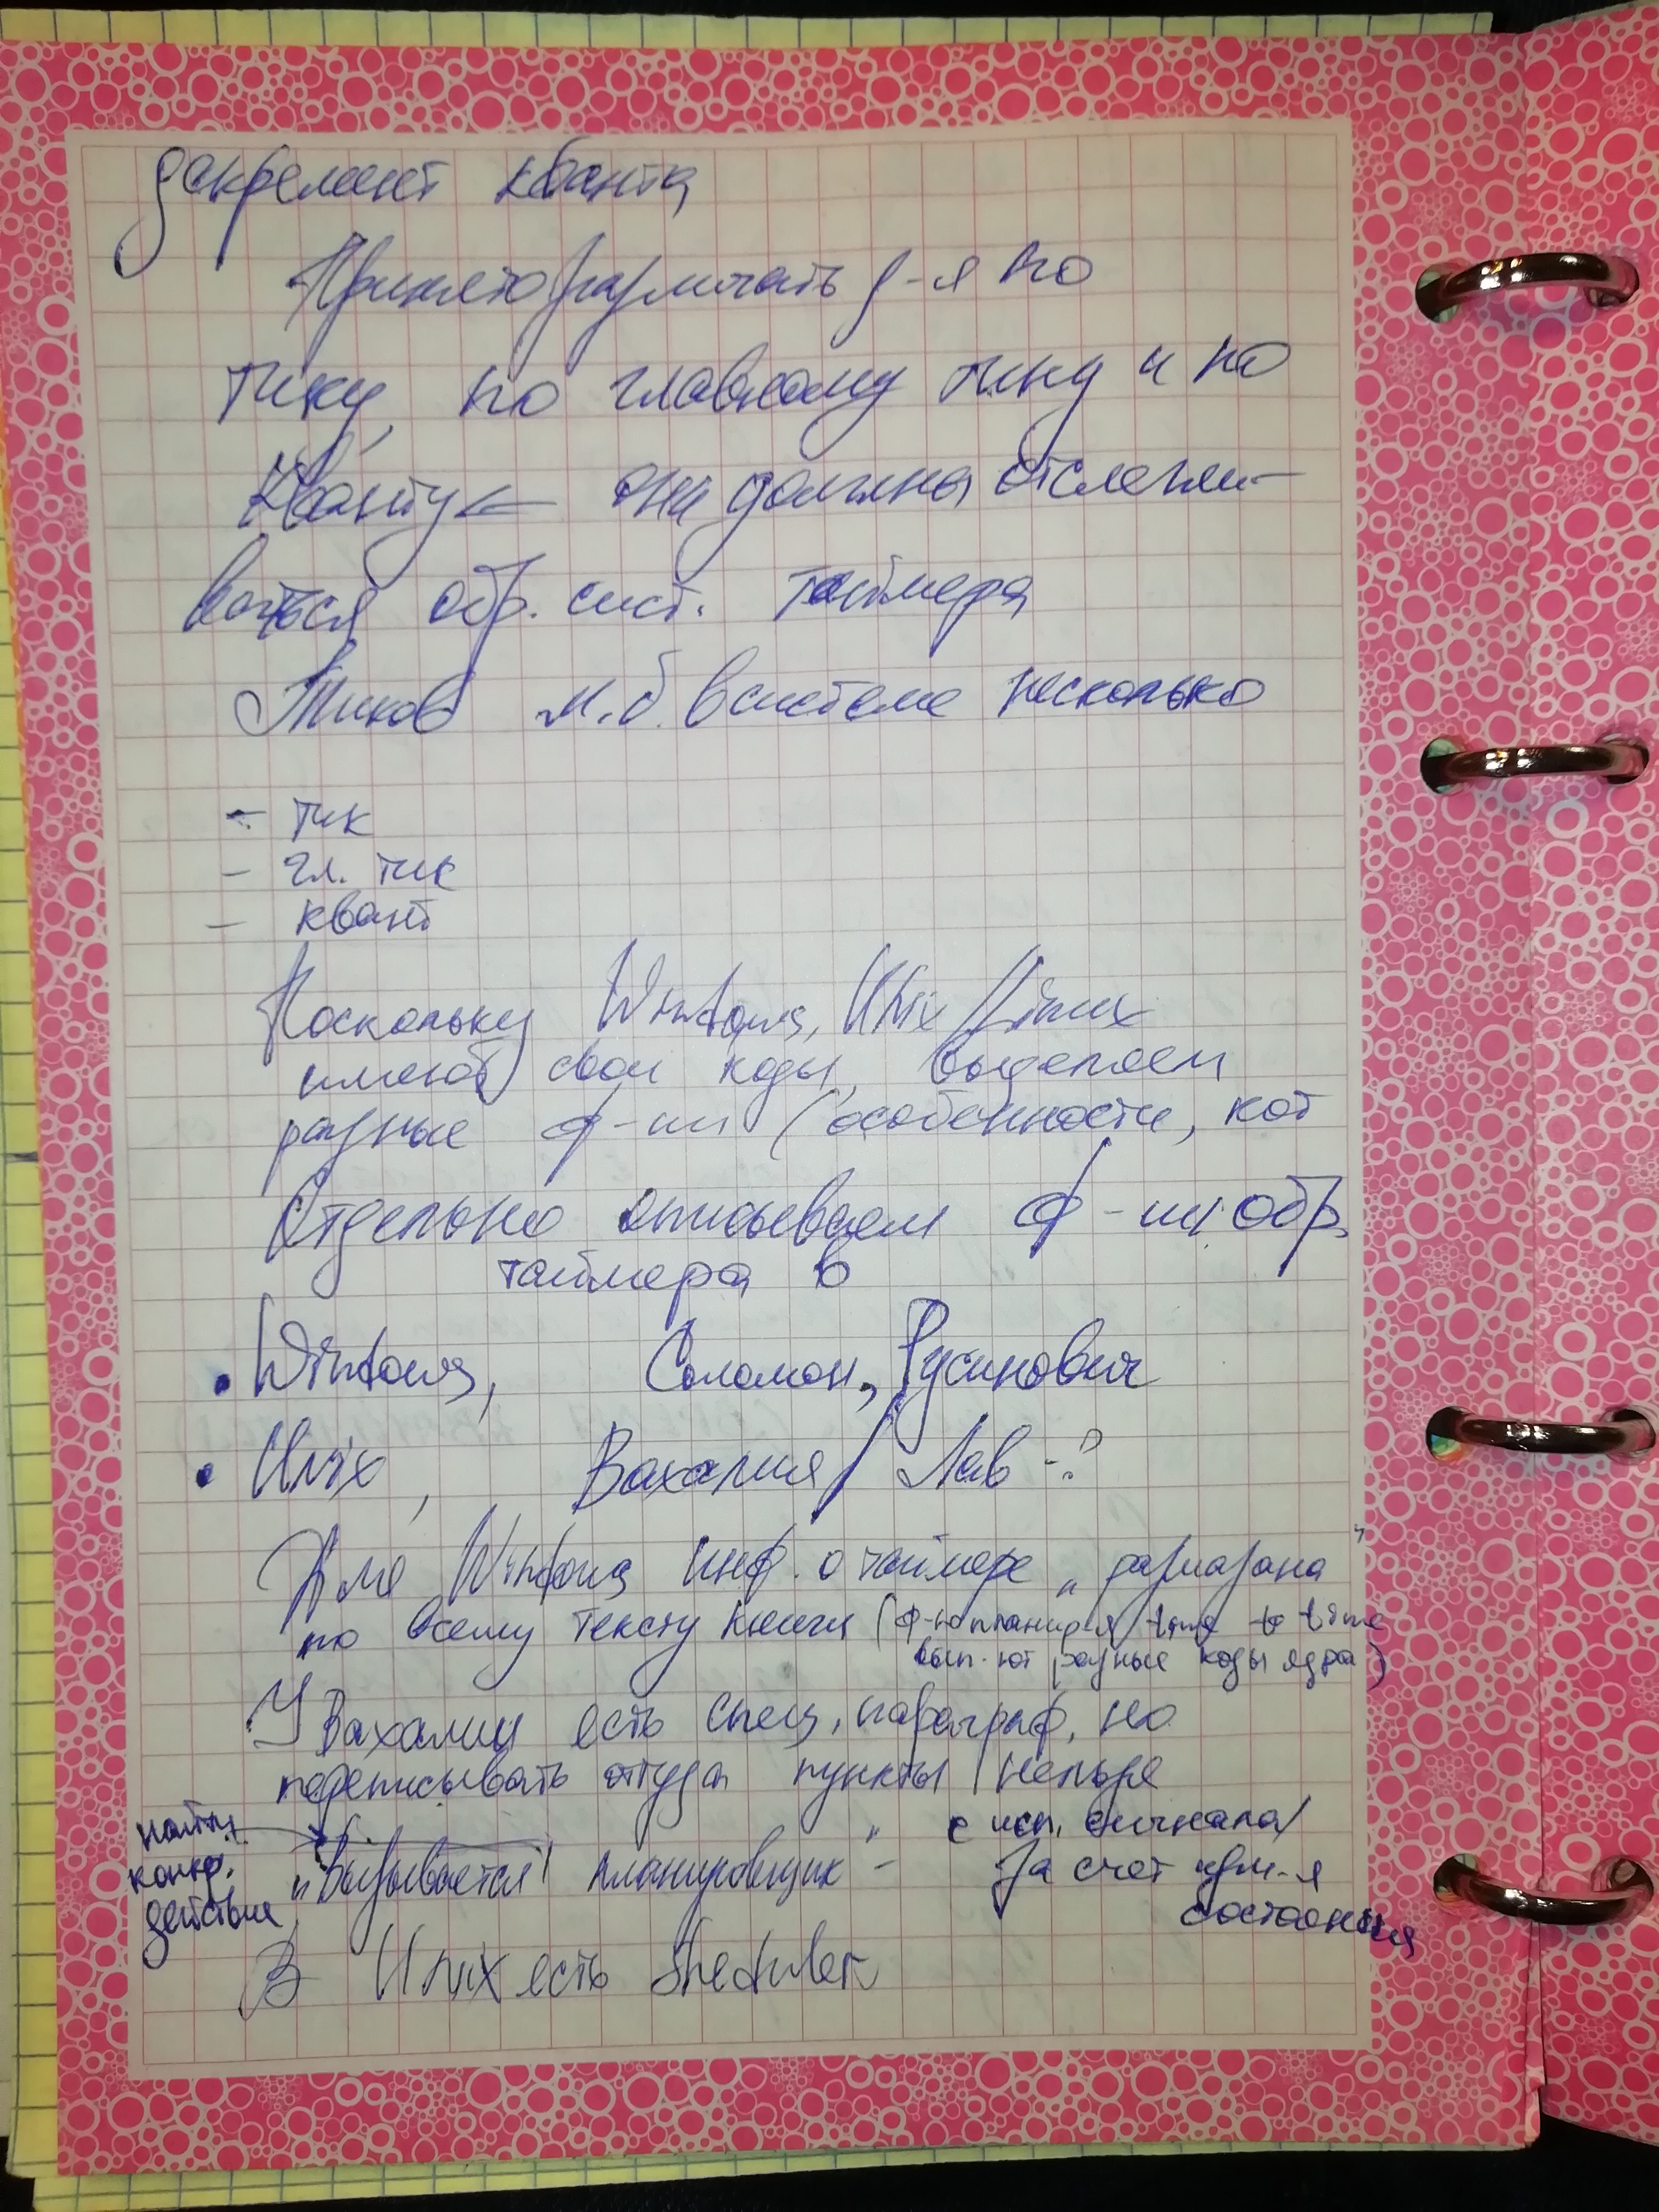 декремент кванта
Принято различать д-я по
тику, по главному тику и по
кванту ← они должны отслежи-
ваться обр. сист. таймера
Тиков м.б. в системе несколько
- тик
- гл. тик
- квант
Поскольку Windows, Unix/Linux
имеют свои коды, выделяем
разные ф-ии (особенности, кот
Отдельно описываем ф-ии обр.
таймера в
• Windows, Соломон, Русинович
• Unix, Вахалия/ Лав -?
Для Windows инф. о таймере „размазана"
по всему тексту книги (ф-ю планир-я time to time
вып-ют разные коды ядра)
У Вахалии есть спец. параграф, но
переписывать оттуда пункты нельзя
найти
конкр.
действие
с исп. сигнала/
„Вызывается планировщик" - За счет изм-я
состояния
В Unix есть Sheduler